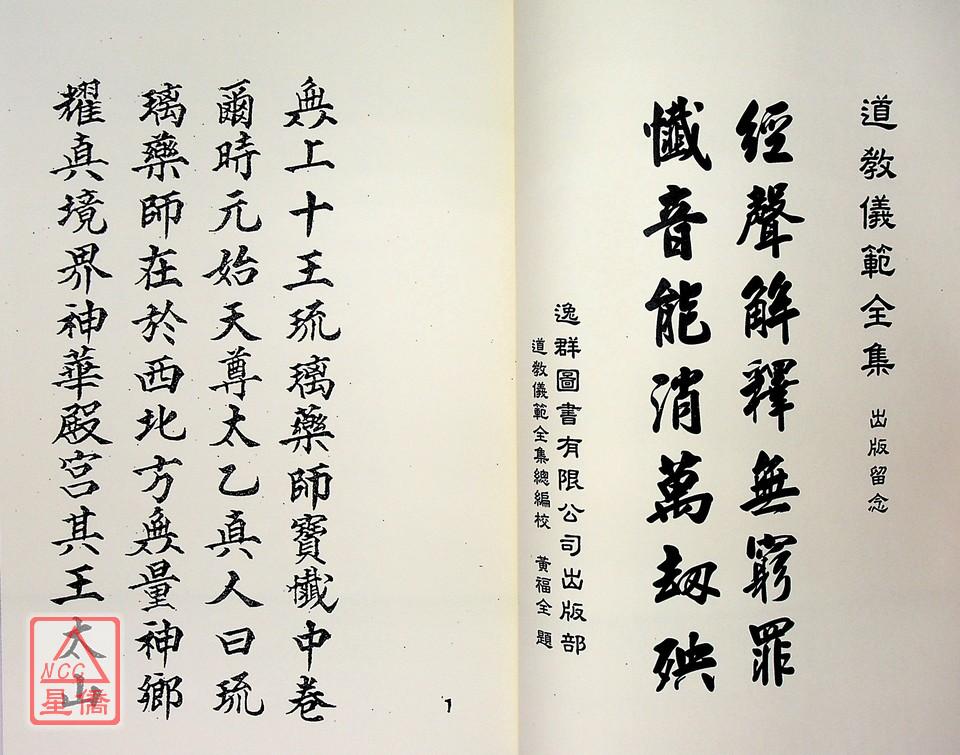 道教儀範全集 出版留念
經聲解釋無窮罪
懺音能消萬劫殃
逸群圖書有限公司出版部
道教儀範全集總編校 黃福全 題
無上十王琉璃藥師寶懺中卷
爾時元始天尊太乙真人曰琉
璃藥師在於西北方無量神鄉
耀真境界神華殿宮其王太山
1
NCC
星僑